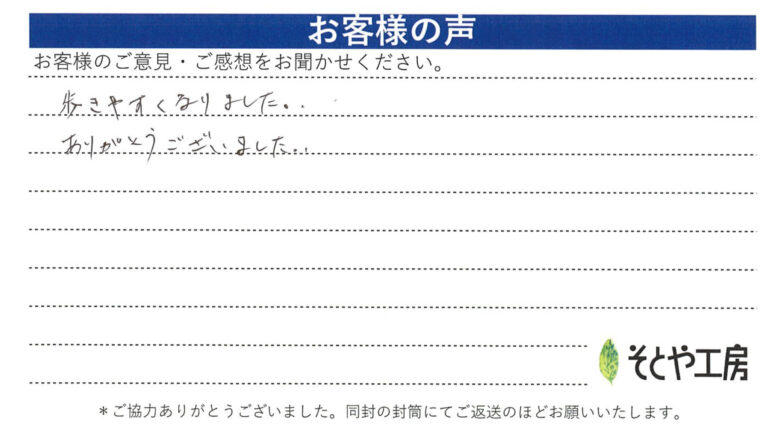 お客様の声
お客様のご意見・ご感想をお聞かせください。
歩きやすくなりました。
ありがとうございました。
そとや工房
＊ご協力ありがとうございました。同封の封筒にてご返送のほどお願いいたします。